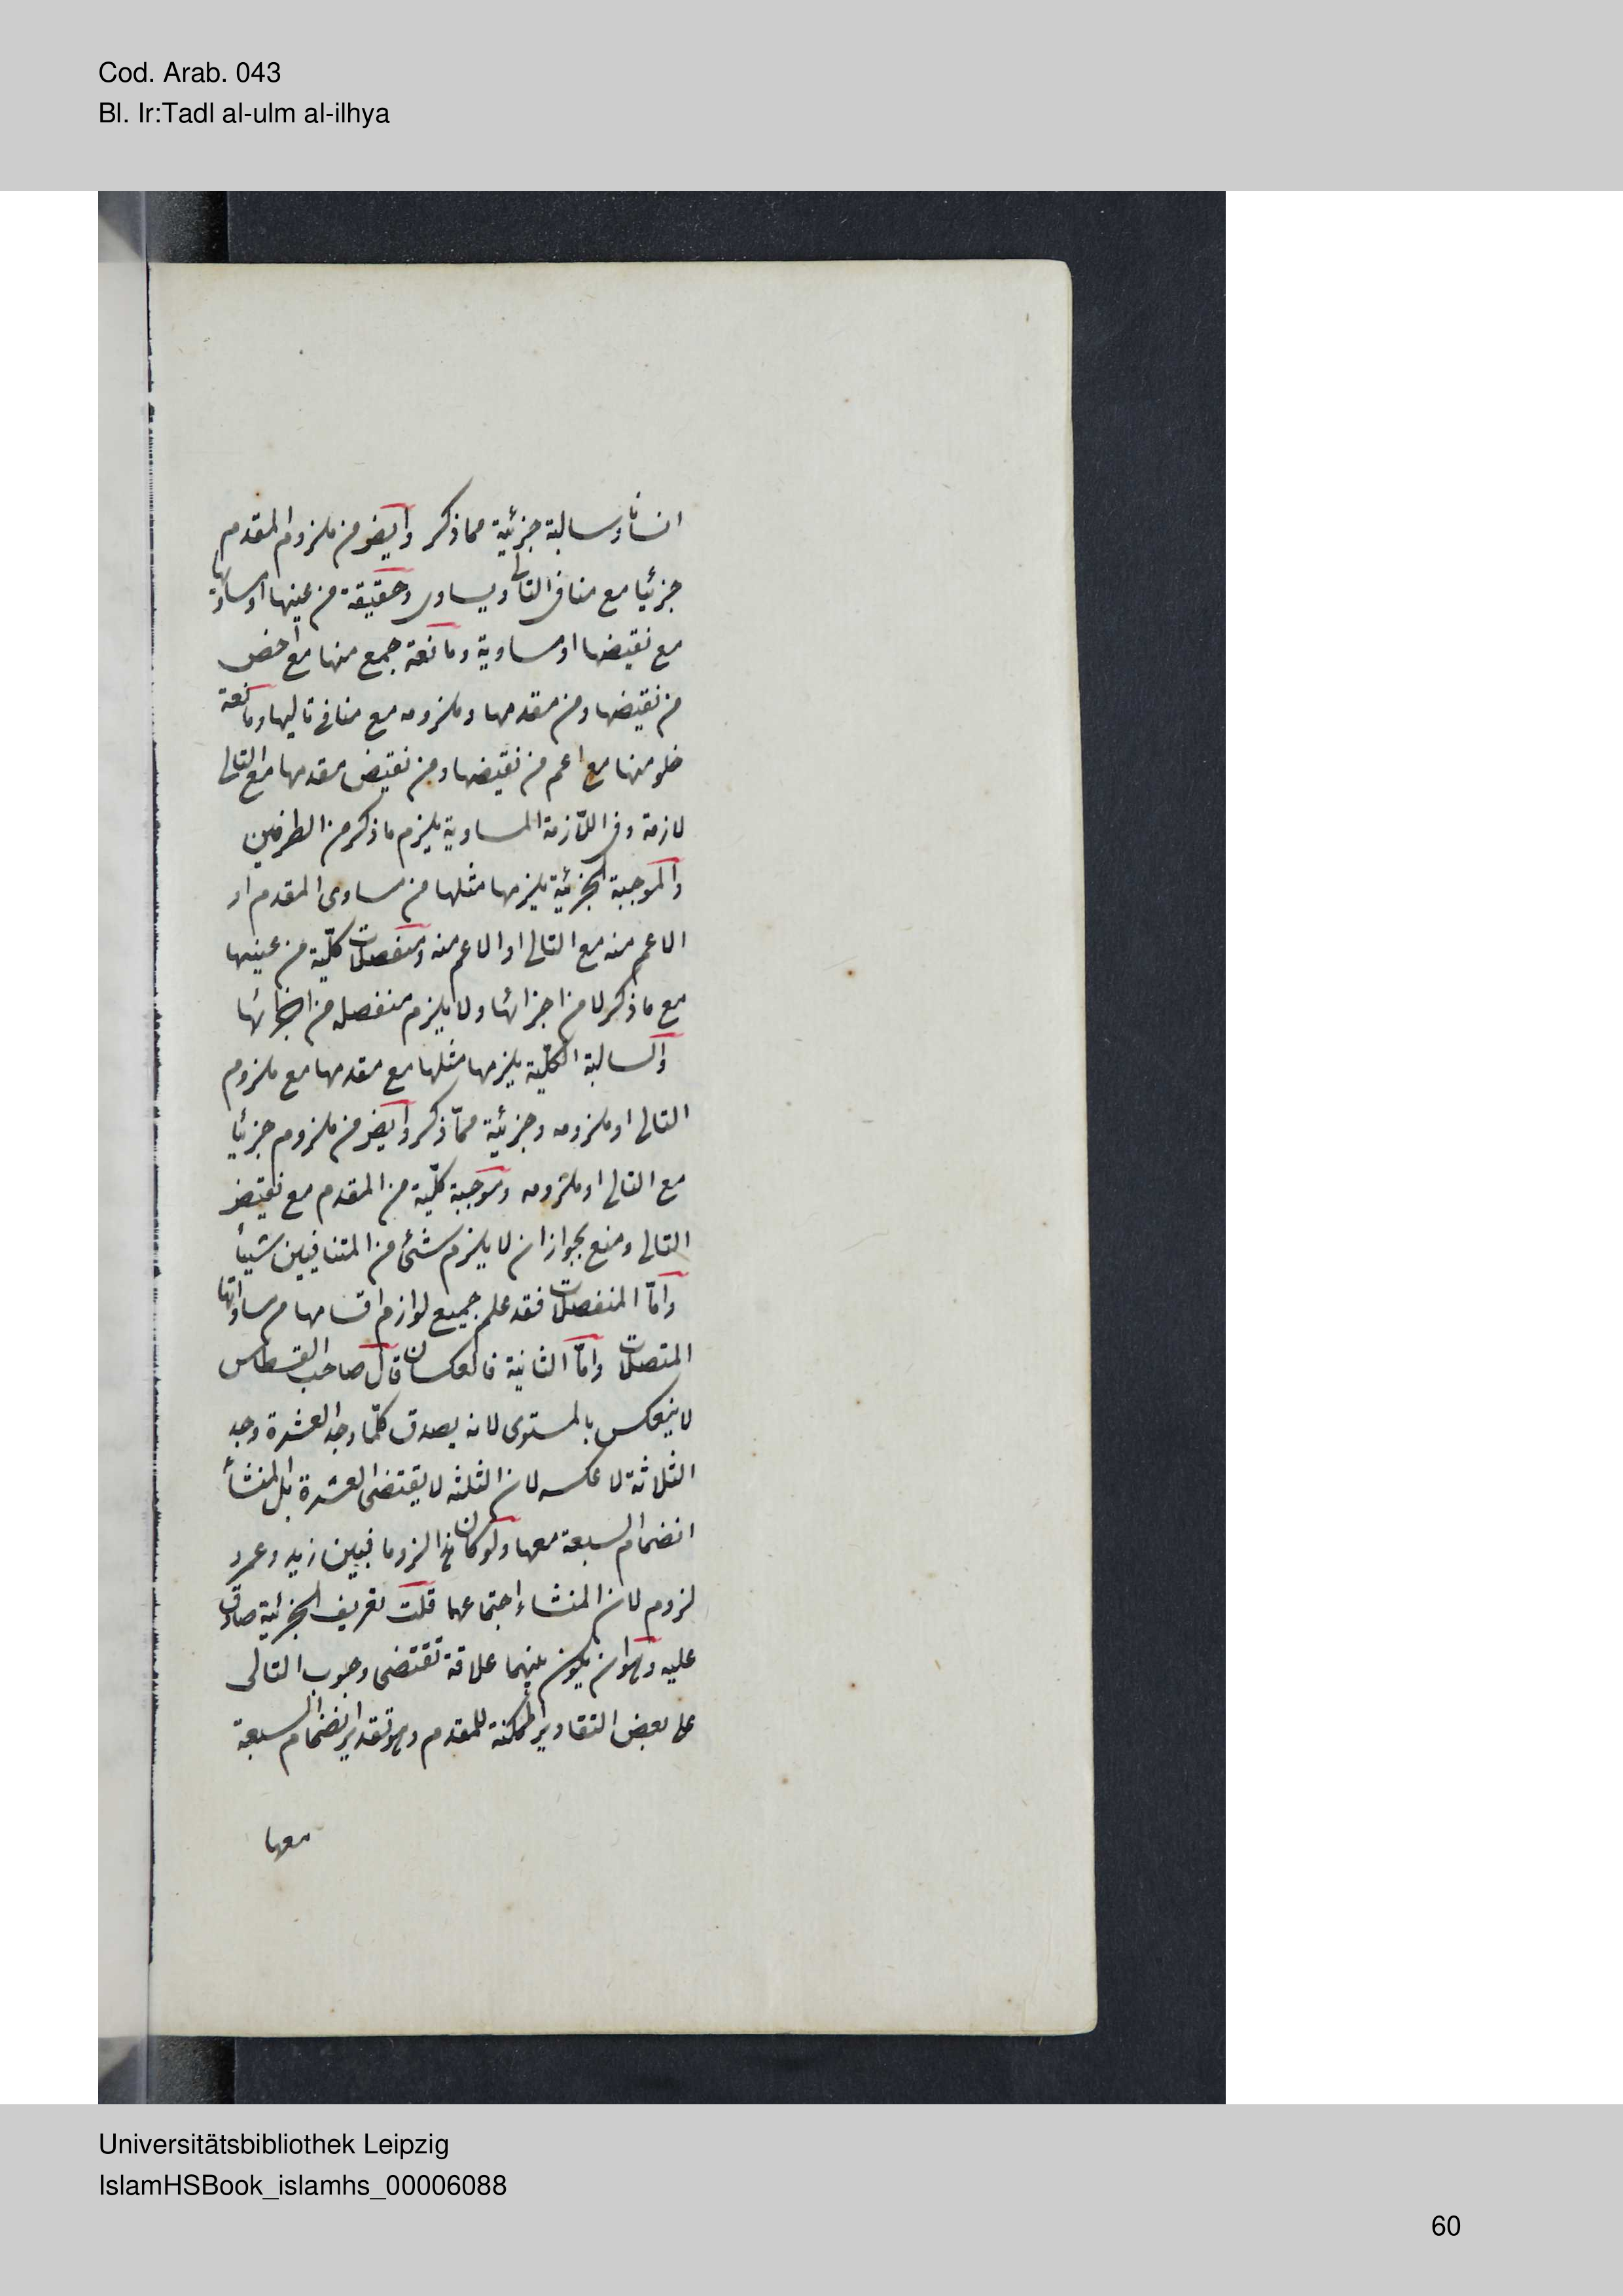 Cod. Arab. 043
Bl. Ir:Tadl al-ulm al-ilhya
وسالبة جزئية مما ذكر وايض من ملزوم المقدم
جزئيا مع منافى التالى ويساوى وحقيقة من عينها او
مع نقيضها او مساوية ومانعة جمع منها مع اخص
من نقيضها ومن مقدمها وملزومه مع منافى تاليها ومانعة
خلو منها مع اعم من نقيضها ومن نقيض مقدمها مع التالى
لازمة وفى اللازمة المساوية يلزم ما ذكر من الطرفين
والموجبة الجزئية يلزمها مثلها من مساوى المقدم او
الاعم منه مع التالى او الاعم منه ومنفصلات كلّية من عينها
مع ما ذكر لا من اجزائها ولا يلزم منفصله من اجزائها
والسالبة الكلّية يلزمها مثلها مع مقدمها مع ملزوم
التالى او ملزومه وجزئية ممّا ذكر وايض من ملزوم جزئيا
مع التالى او ملزومه وموجبة كلّية من المقدم مع نقيض
التالى ومنع بجواز ان لا يلزم شئى من المتنافيين شيأ
وامّا المنفصلات فقد علم جميع لوازم اقسامها من مساواتها
المتصلات وامّا الثانية فالعكسان قال صاحب القسطاس
لا ينعكس بالمستوى لانه يصدق كلّما وجد العشرة وجد
الثلاثة لا عكسه لان الثلثه لا يقتضى العشرة بل المنشأ
انضمام السبعة معها ولو كان لزوما فبين زيد وعمرو
لزوم لان المنشاء اجتماعهما قلت تعريف الجزئية صادق
عليه وهو ان يكون بينهما علاقة تقتضى وجوب التالى
على بعض التقادير الممكنة للمقدم وهو تقدير انضمام السبعة
معها
Universitätsbibliothek Leipzig
IslamHSBook_islamhs_00006088
60